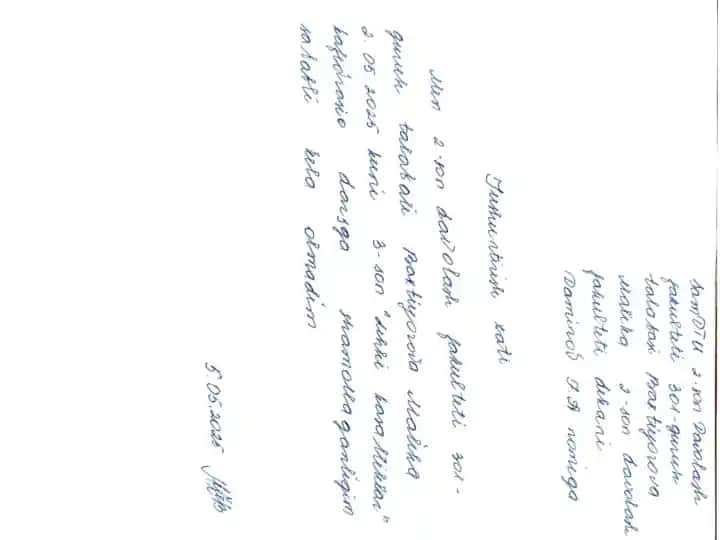 SamDTU 2-son Davolash
fakulteti 301-guruh
talabasi Baxtiyorova
Malika 2-son davolash
fakulteti dekani
Daminov F.A nomiga
Tushuntirish xati
Men 2-son davolash fakulteti 301-
guruh talabasi Baxtiyorova Malika
2.05 2025 kuni 3-son "ichki kasalliklar"
kafedrasi darsga shamollaganligim
sababli kela olmadim
5.05.2025